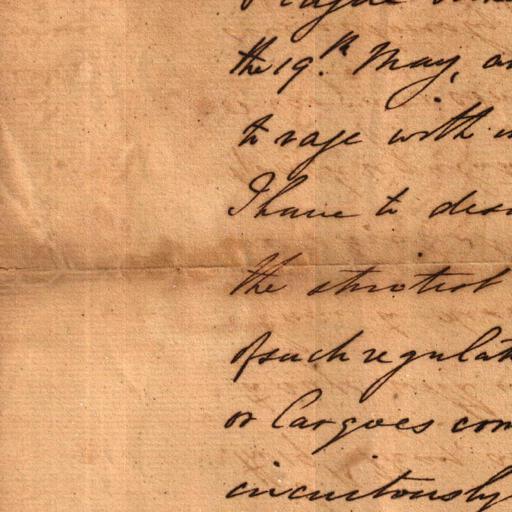 Plague
the 19.th May, an
to rage with
I have to desi
the strictest
of such regulat
or Cargoes com
circuitously